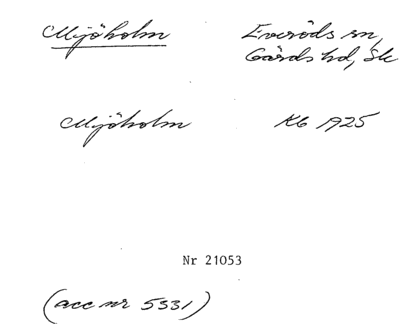 Mjöholm Everöds sn,
Gärds hd, Sk
Mjöholm Kb 1925
Nr 21053
(acc nr 5531)